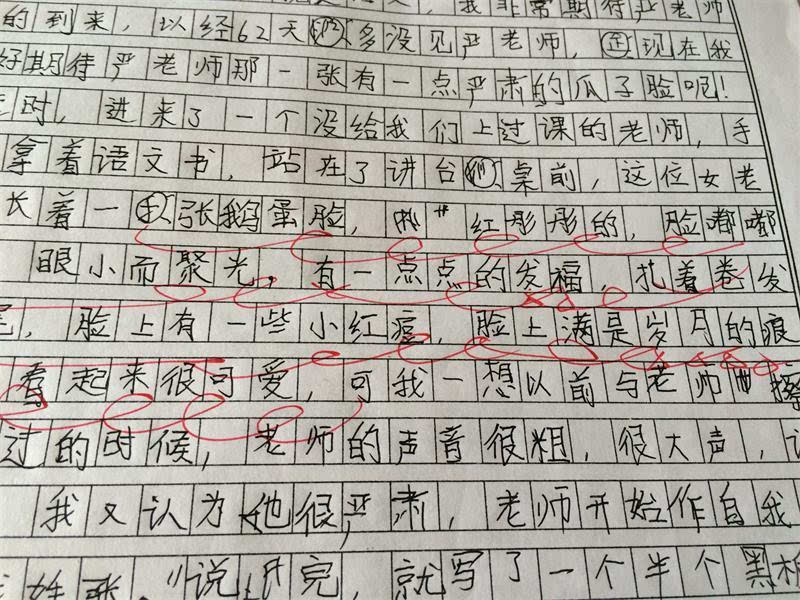 我非常期待严老师
的到来，以经62天多没见严老师，现在我
好期待严老师那一张有一点严肃的瓜子脸呢！
时，进来了一个没给我们上过课的老师，手
拿着语文书，站在了讲台桌前，这位女老
长着一张鹅蛋脸，红彤彤的，脸嘟嘟
眼小而聚光，有一点点的发福，扎着卷发
尾，脸上有一些小红痘，脸上满是岁月的痕
看起来很可爱，可我一想以前与老师擦
过的时候，老师的声音很粗，很大声，
我又认为他很严肃，老师开始作自我
姓张，说完，就写了一个半个黑板